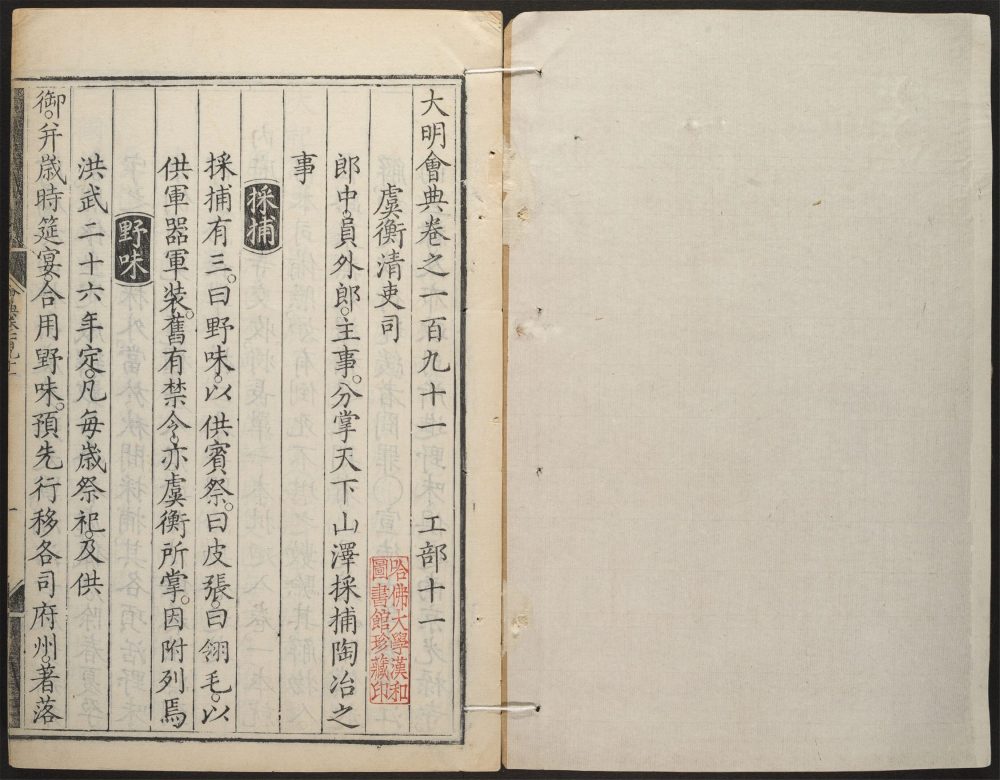 大明會典卷之一百九十一 工部十一
虞衡清吏司
郎中。員外郎。主事。分掌天下山澤採捕陶冶之
事
採捕
採捕有三。曰野味。以供賓祭。曰皮張。曰翎毛。以
供軍器軍裝。舊有禁令。亦虞衡所掌。因附列焉
野味
洪武二十六年定。凡每歲祭祀。及供
御。并歲時筵宴。合用野味。預先行移各司府州。著落
哈佛大學漢和
圖書館珍藏印